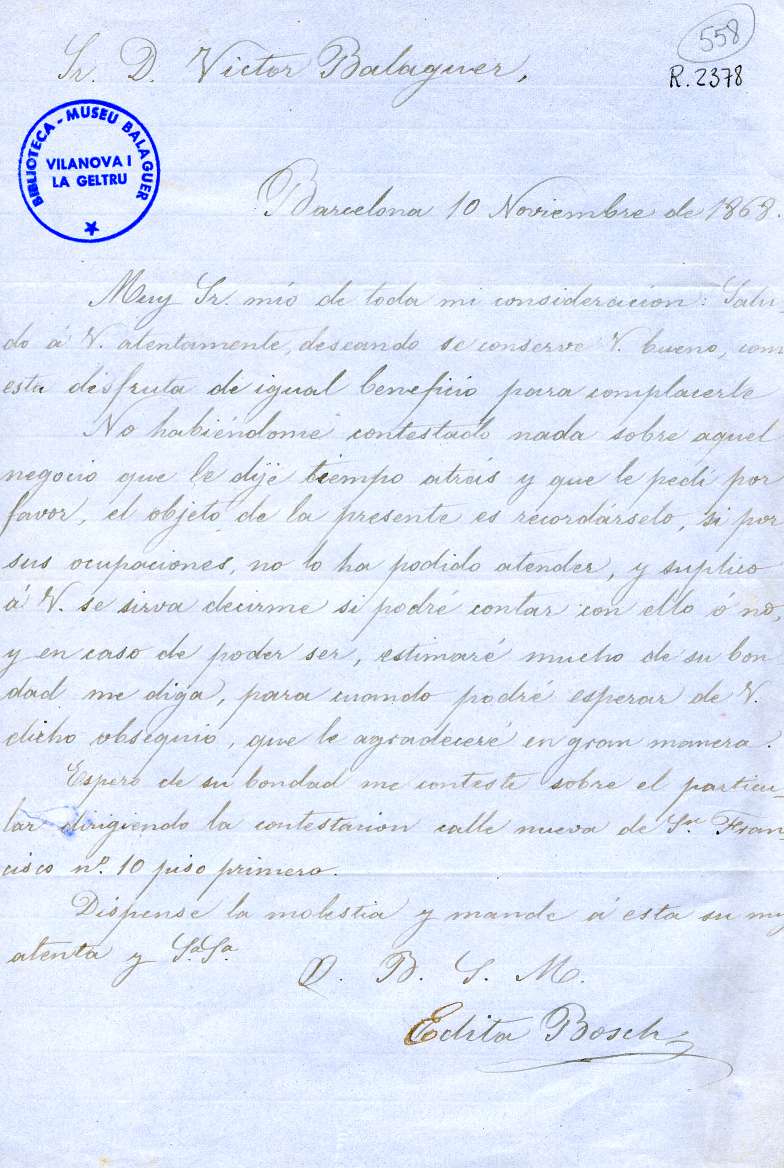 558
R. 2378
Sr. D. Victor Balaguer,
BIBLIOTECA - MUSEU BALAGUER
VILANOVA I
LA GELTRU
Barcelona 10 Noviembre de 1868.
Muy Sr. mío de toda mi consideracion: Salu
do á V. atentamente, deseando se conserve V. bueno, com
esta disfruta de igual beneficio para complacerle
No habiéndome contestado nada sobre aquel
negocio que le dije tiempo atrás y que le pedí por
favor, el objeto de la presente es recordárselo, si por
sus ocupaciones, no lo ha podido atender, y suplico
á V. se sirva decirme si podré contar con ello ó no,
y en caso de poder ser, estimaré mucho de su bon
dad me diga, para cuando podré esperar de V.
dicho obsequio, que le agradeceré en gran manera.
Espero de su bondad me conteste sobre el particu
lar dirigiendo la contestacion calle nueva de Sn Fran
cisco nº. 10 piso primero.
Dispense la molestia y mande á esta su my
atenta y Sa. Sa.
Q. B. S. M.
Edita Bosch